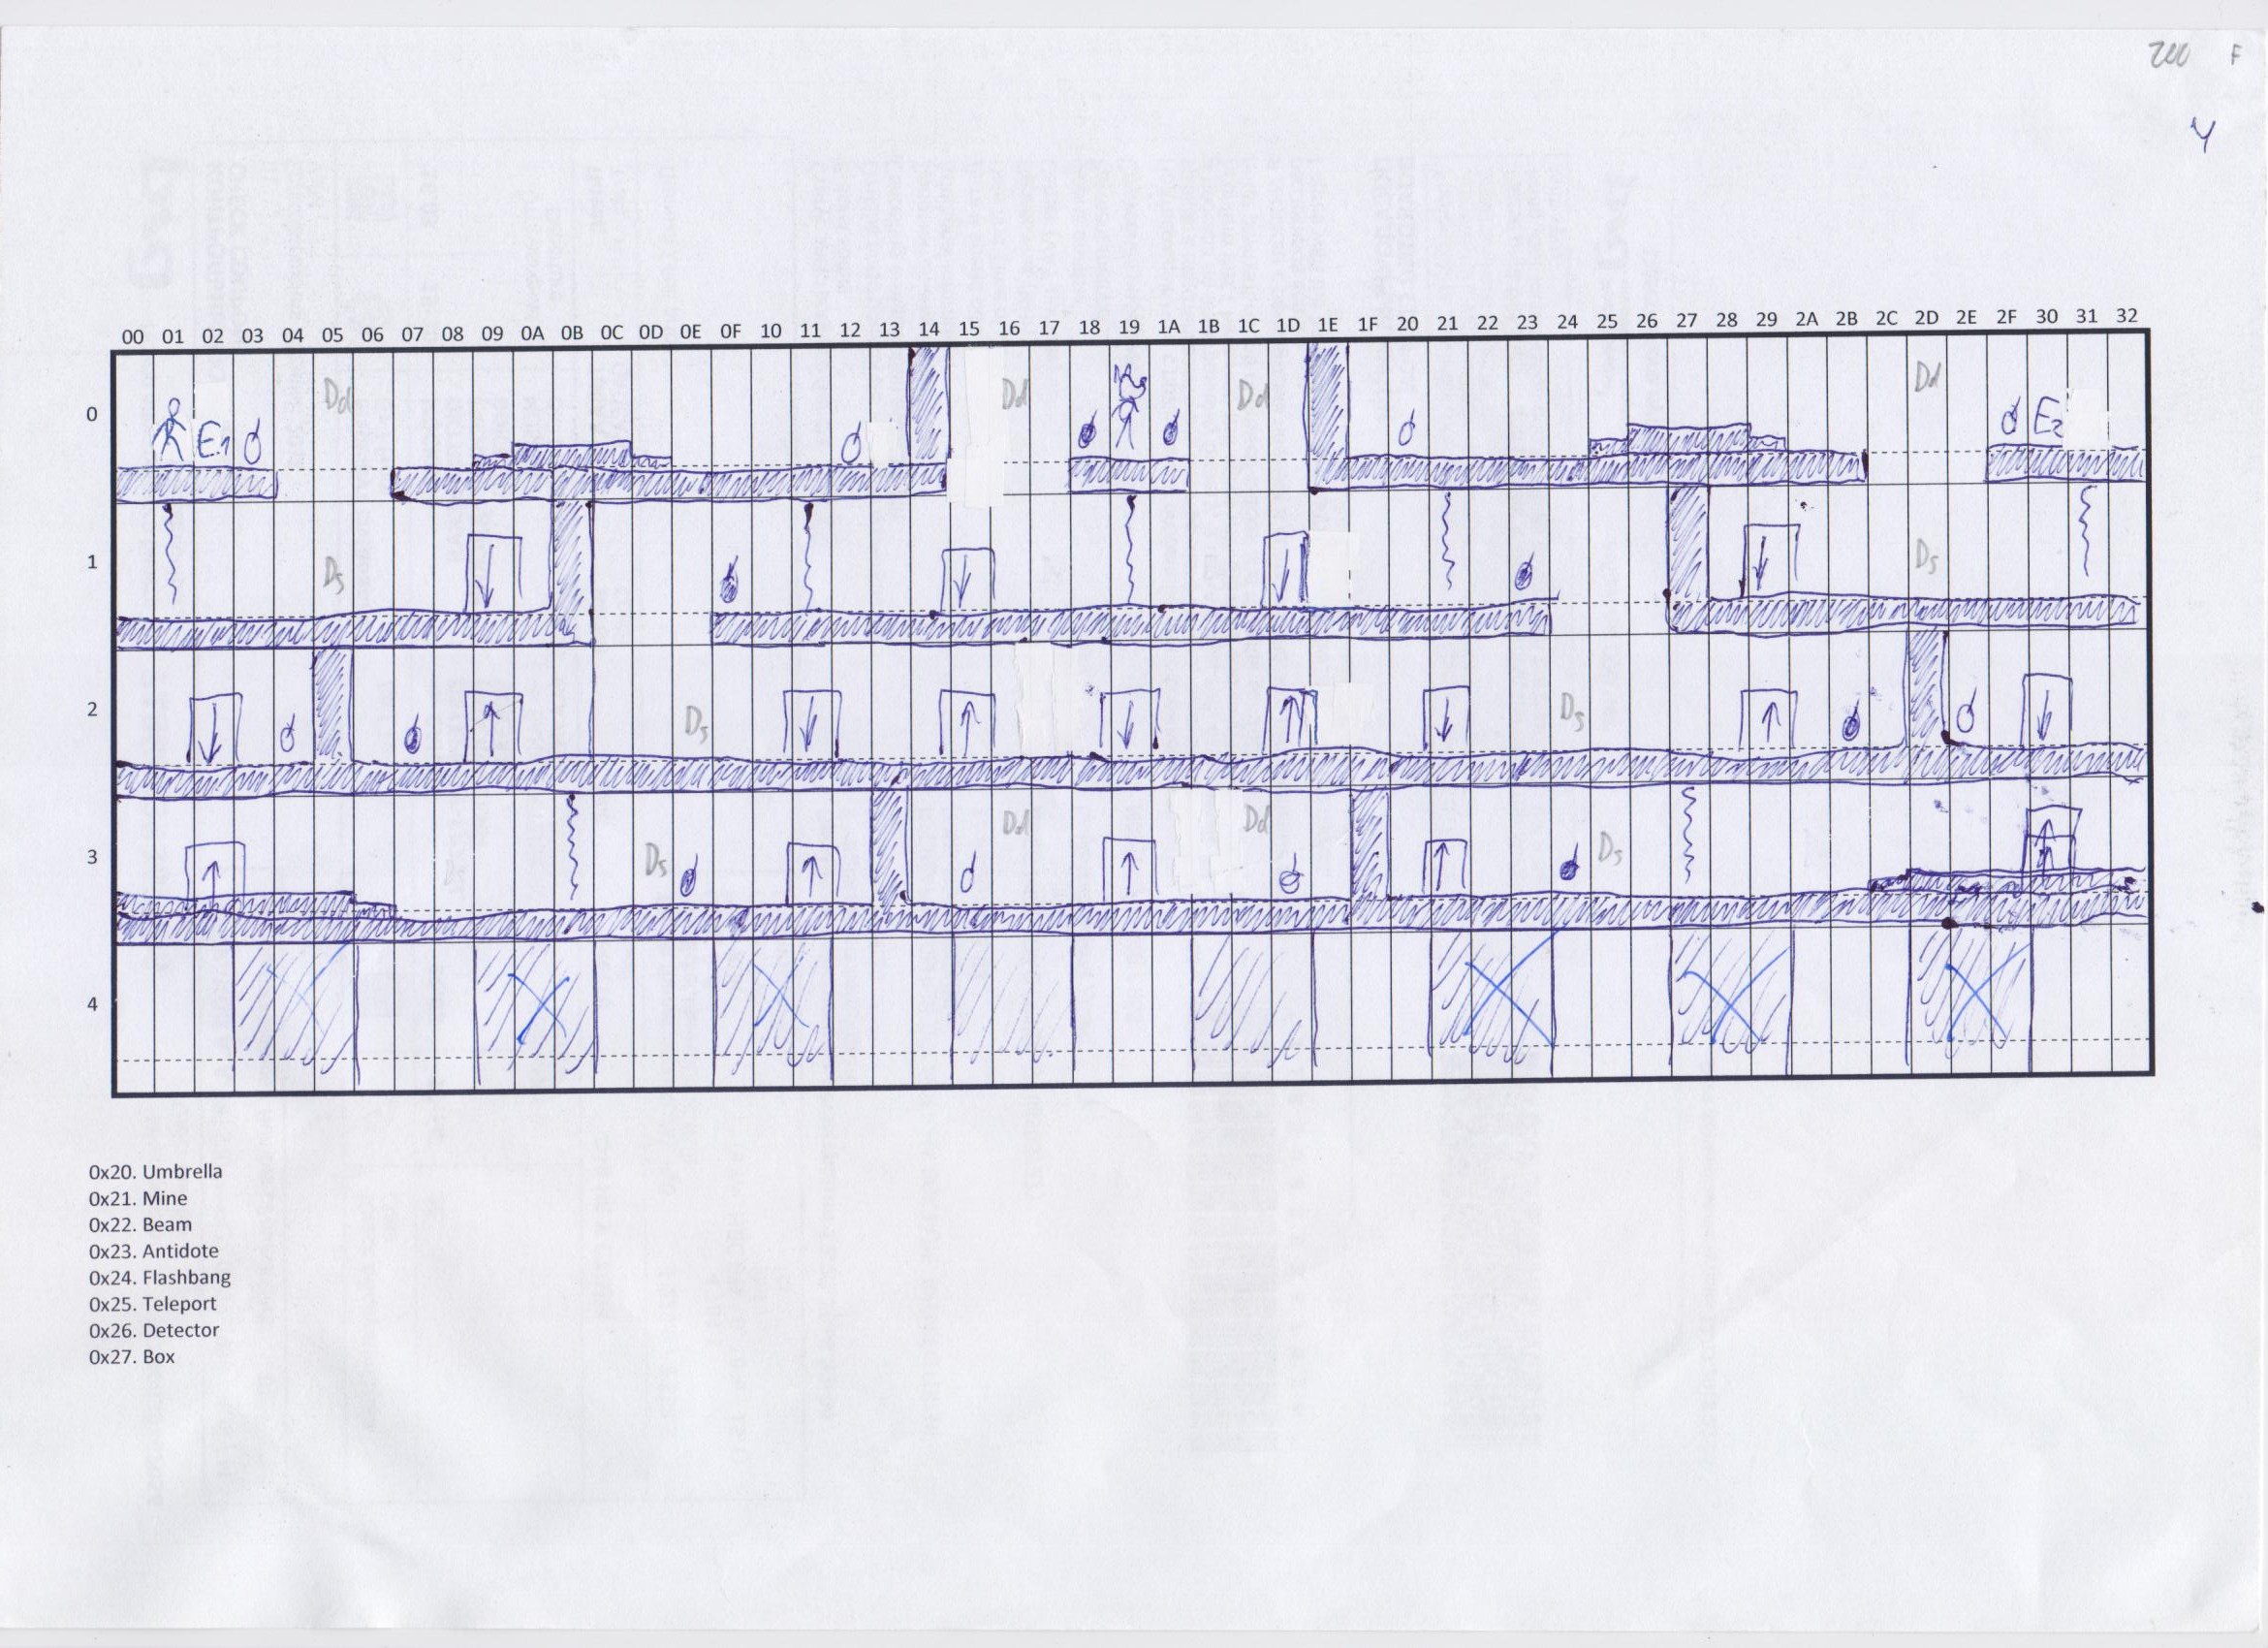 F
4
00 01 02 03 04 05 06 07 08 09 0A 0B 0C 0D 0E 0F 10 11 12 13 14 15 16 17 18 19 1A 1B 1C 1D 1E 1F 20 21 22 23 24 25 26 27 28 29 2A 2B 2C 2D 2E 2F 30 31 32
0 E1 Dd Dd Dd Dd E2
1 Ds Ds
2 Ds Ds
3 Ds Dd Dd Ds
4
0x20. Umbrella
0x21. Mine
0x22. Beam
0x23. Antidote
0x24. Flashbang
0x25. Teleport
0x26. Detector
0x27. Box